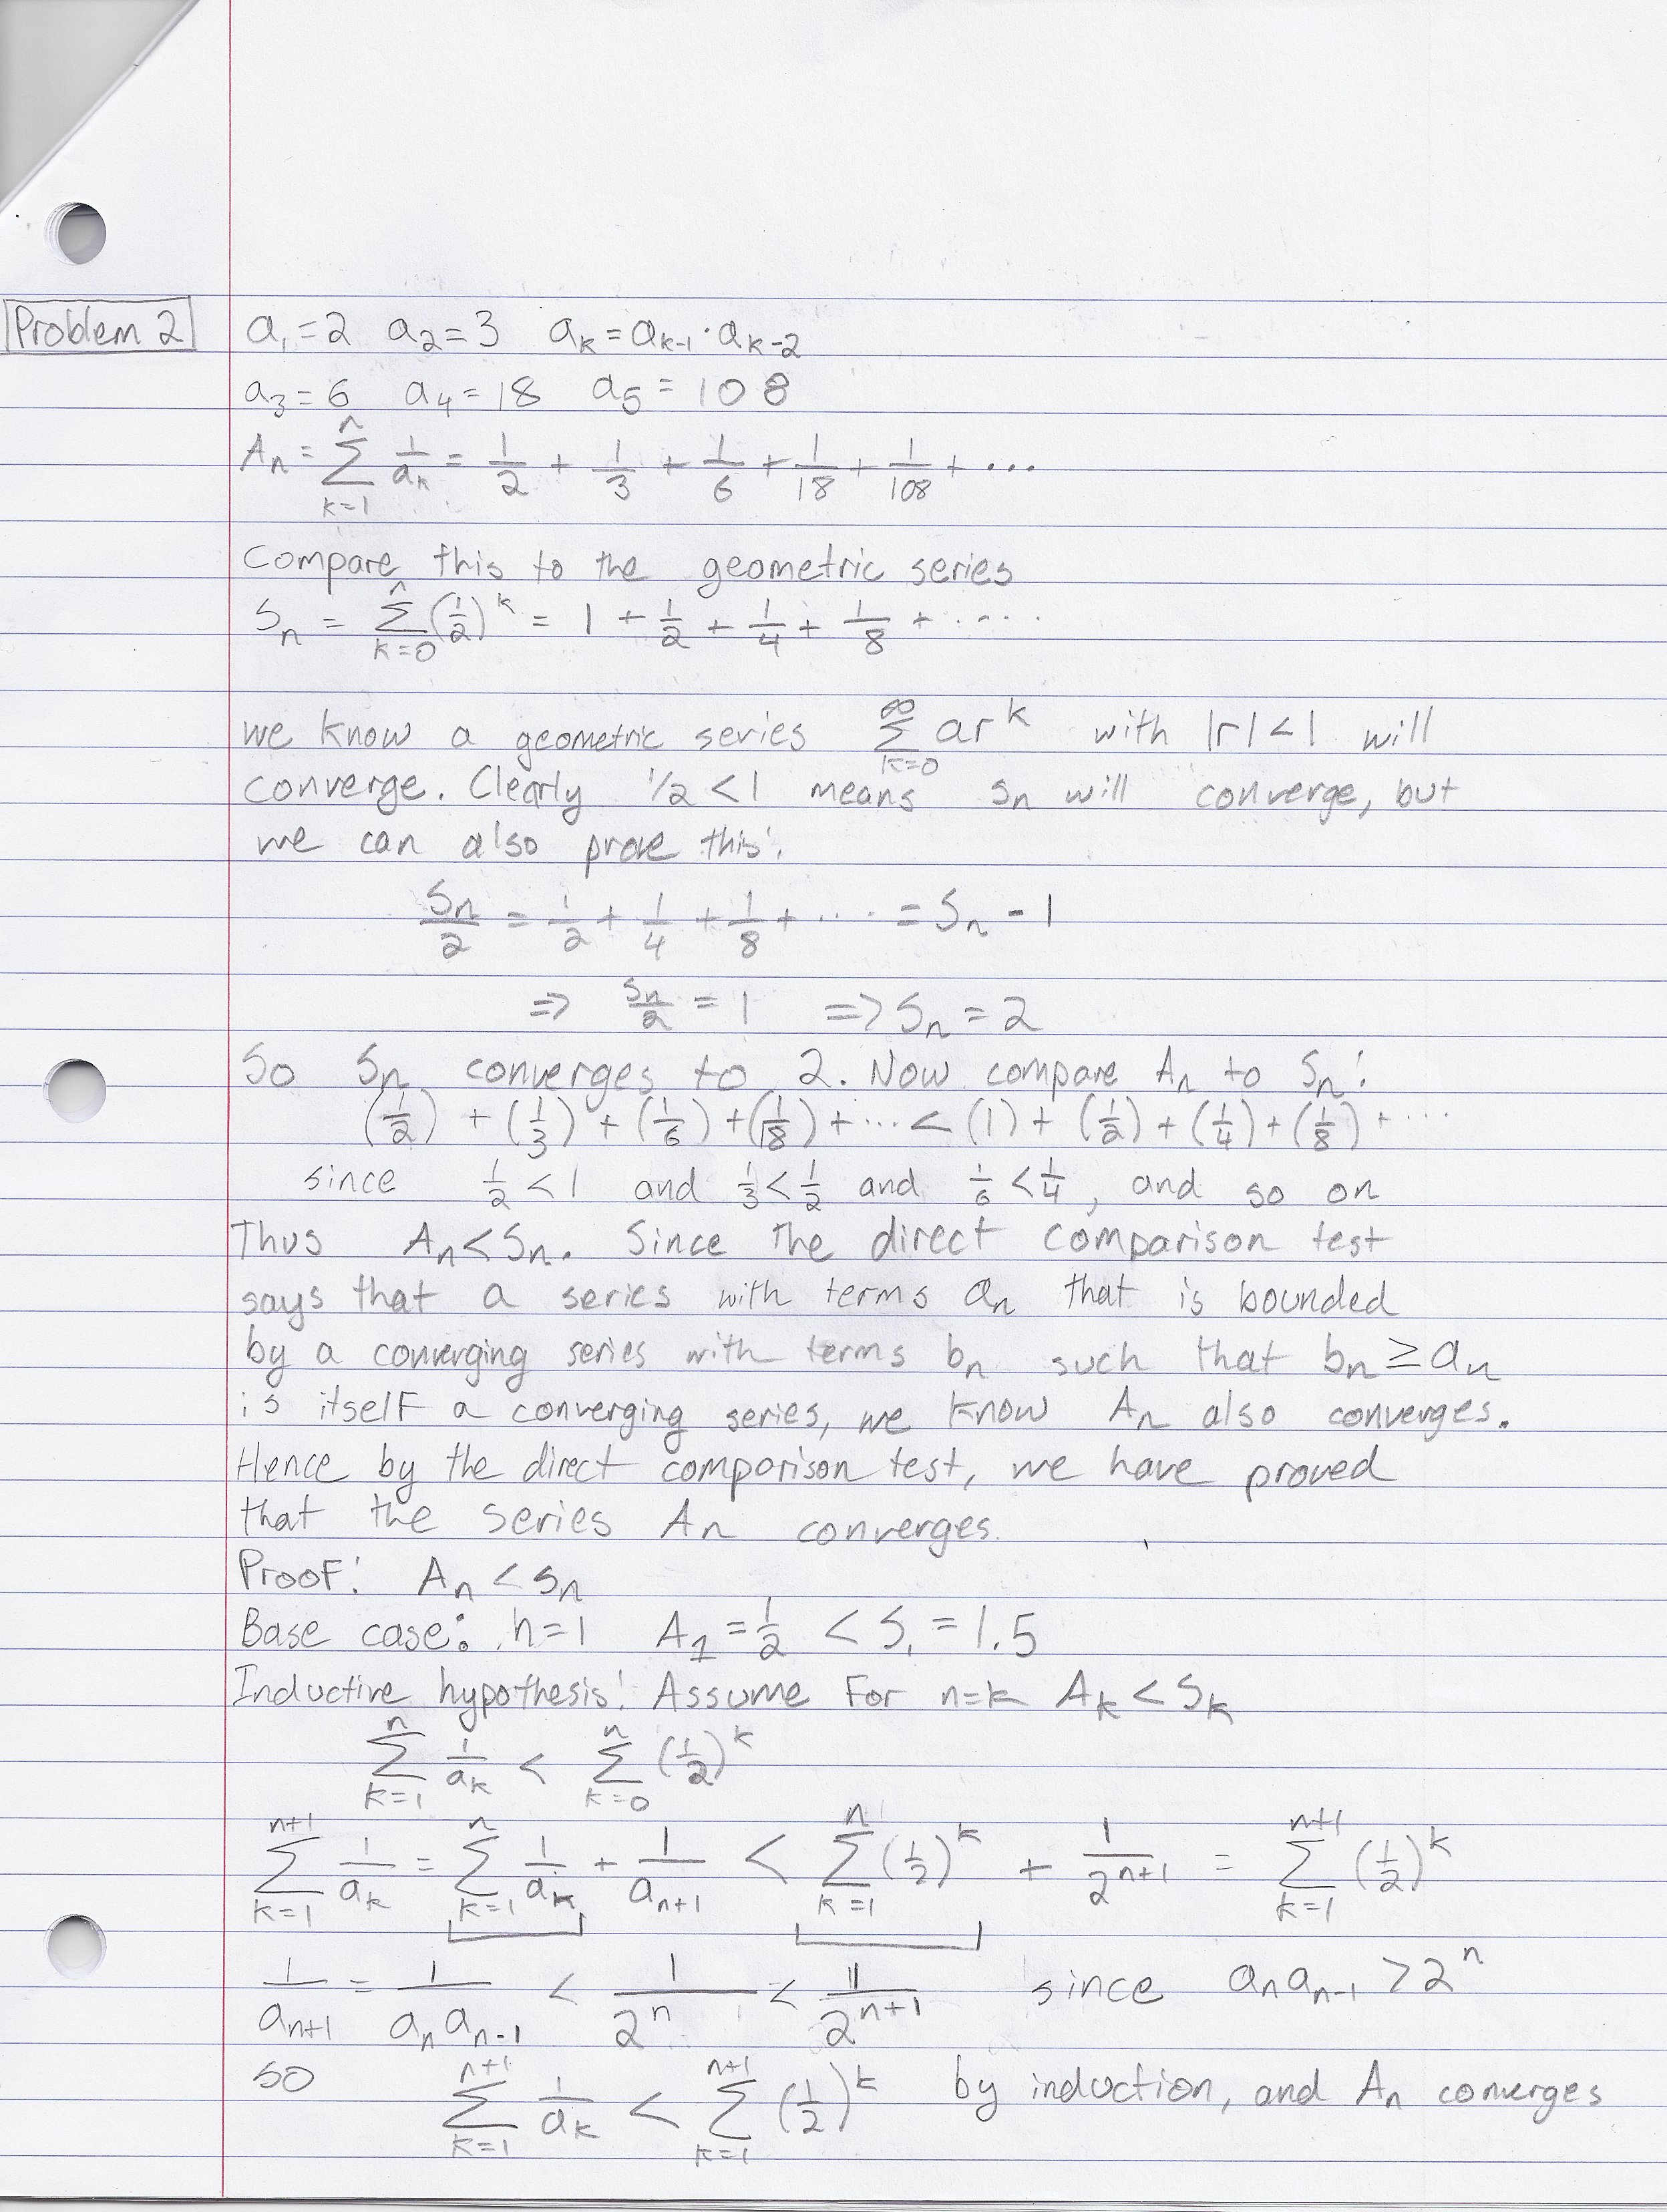 Problem 2 a₁=2 a₂=3 aₖ=aₖ₋₁·aₖ₋₂
a₃=6 a₄=18 a₅=108
Aₙ = Σ_{k=1}^{n} 1/aₖ = 1/2 + 1/3 + 1/6 + 1/18 + 1/108 + ...
Compare this to the geometric series
Sₙ = Σ_{k=0}^{n} (1/2)^k = 1 + 1/2 + 1/4 + 1/8 + ....
we know a geometric series Σ_{k=0}^{∞} ar^k with |r|<1 will
converge. Clearly 1/2 <1 means Sₙ will converge, but
we can also prove this:
Sₙ/2 = 1/2 + 1/4 + 1/8 + .... = Sₙ - 1
=> Sₙ/2 = 1 => Sₙ = 2
So Sₙ converges to 2. Now compare Aₙ to Sₙ:
(1/2) + (1/3) + (1/6) + (1/18) + ... < (1) + (1/2) + (1/4) + (1/8) + ....
since 1/2 < 1 and 1/3 < 1/2 and 1/6 < 1/4, and so on
Thus Aₙ<Sₙ. Since the direct comparison test
says that a series with terms aₙ that is bounded
by a converging series with terms bₙ such that bₙ ≥ aₙ
is itself a converging series, we know Aₙ also converges.
Hence by the direct comparison test, we have proved
that the series Aₙ converges.
Proof: Aₙ < Sₙ
Base case: n=1 A₁ = 1/2 < S₁ = 1.5
Inductive hypothesis: Assume For n=k Aₖ < Sₖ
Σ_{k=1}^{n} 1/aₖ < Σ_{k=0}^{n} (1/2)^k
Σ_{k=1}^{n+1} 1/aₖ = Σ_{k=1}^{n} 1/aₖ + 1/aₙ₊₁ < Σ_{k=1}^{n} (1/2)^k + 1/2^{n+1} = Σ_{k=1}^{n+1} (1/2)^k
1/aₙ₊₁ = 1/(aₙ aₙ₋₁) < 1/2^n < 1/2^{n+1} since aₙaₙ₋₁ > 2^n
so Σ_{k=1}^{n+1} 1/aₖ < Σ_{k=1}^{n+1} (1/2)^k by induction, and Aₙ converges